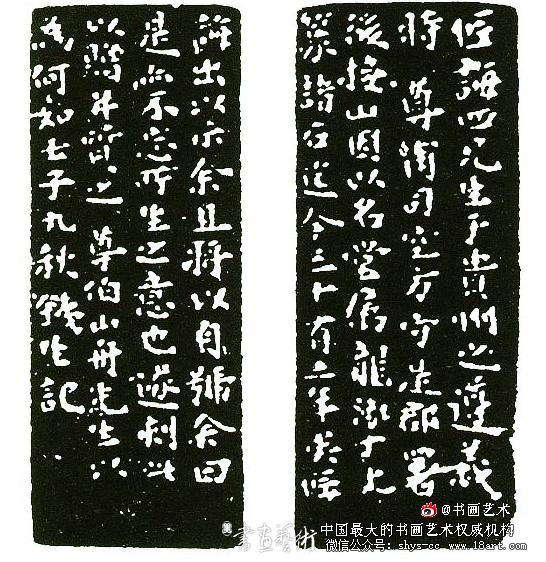 四兄生于貴州之遵義
時尊甫司空方守是郡署
後接山因以名嘗屬龍泓丁大
篆諸石迄今三十有二年矣
出以示余且將以自號余曰
是亦不忘所生之意也遂刻此
以歸并質之尊伯山舟先生以
為何如壬子九秋鐵生記
書畫藝術
@书画艺术
中国最大的书画艺术权威机构
微信公众号: shys-cc www.18art.com